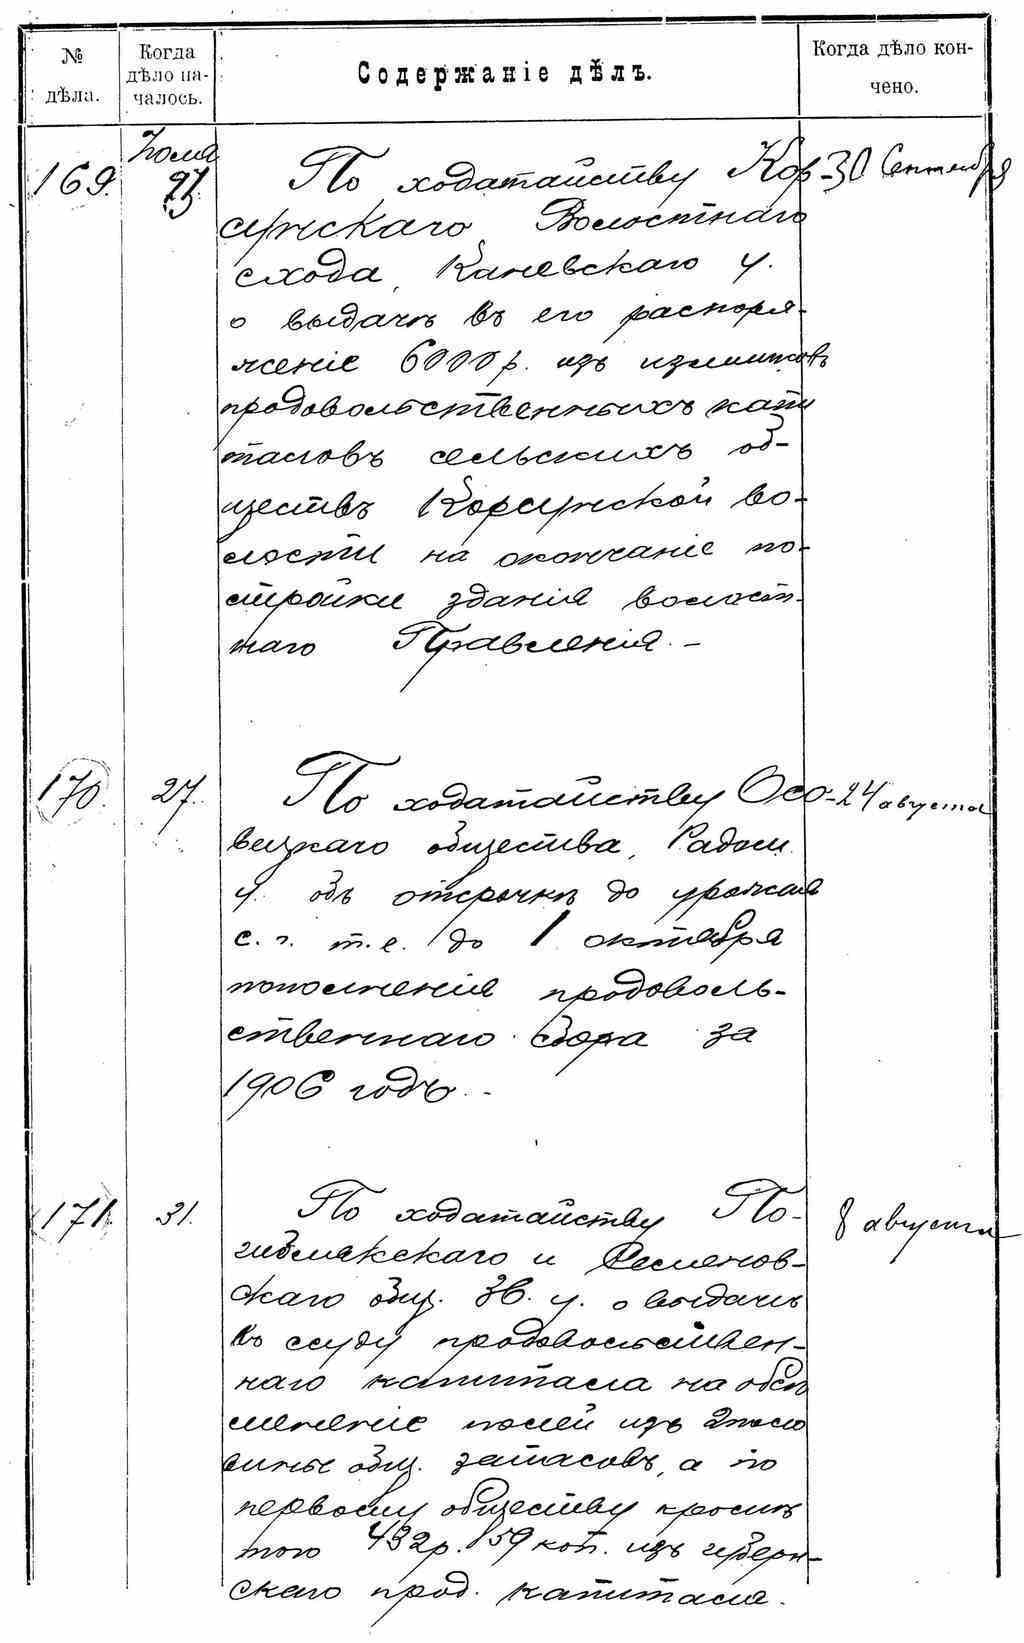 № дѣла.
Когда дѣло на-
чалось.
Содержаніе дѣлъ.
Когда дѣло кон-
чено.
169. Іюля 23. По ходатайству Кор- 30 Сентября
сунскаго Волостнаго
схода, Каневскаго у.
о выдачѣ въ его распоря-
женіе 6000 р. изъ излишковъ
продовольственныхъ капи
таловъ сельскихъ об-
ществъ Корсунской во-
лости на окончаніе по-
стройки зданія волост-
наго Правленія. –
170. 27. По ходатайству Осо- 24 августа
вецкаго общества, Радом.
у. объ отсрочкѣ до урожая
с. г. т. е. до 1 октября
пополненія продоволь-
ственнаго сбора за
1906 годъ. -
171. 31. По ходатайству По- 8 августа
и
скаго общ. Зв. у. о выдачѣ
въ ссуду продовольствен-
наго капитала на обсѣ
мененіе полей изъ
общ. запасовъ, а по
первому обществу кромѣ
того 432 р. 59 коп. изъ губерн-
скаго прод. капитала.